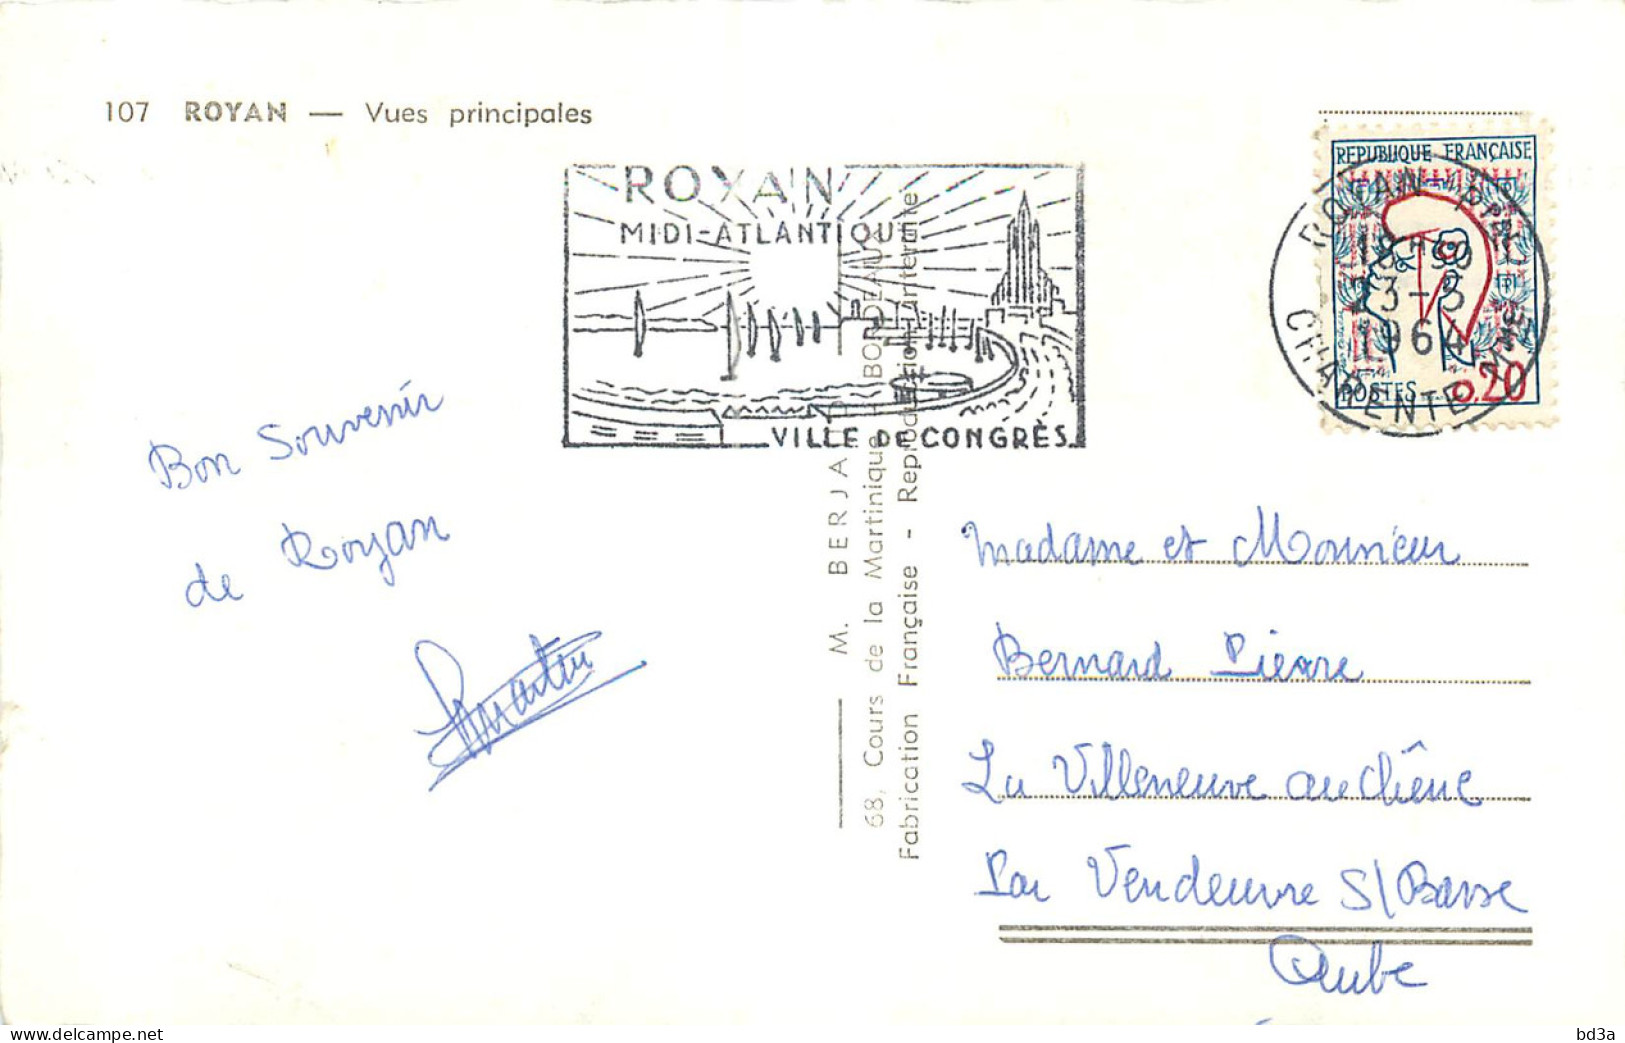 107 ROYAN — Vues principales
ROYAN
MIDI-ATLANTIQUE
VILLE DE CONGRÈS
REPUBLIQUE FRANÇAISE
POSTES 0.20
ROYAN
18 H 30
1964
CHARENTE MME
Bon Souvenir
de Royan
Martin
M. BERJA
68, Cours de la Martinique - BORDEAUX
Fabrication Française - Reproduction Interdite
Madame et Monsieur
Bernard Pierre
La Villeneuve au Chêne
Par Vendeuvre S/ Barse
Aube
www.delcampe.net
bd3a